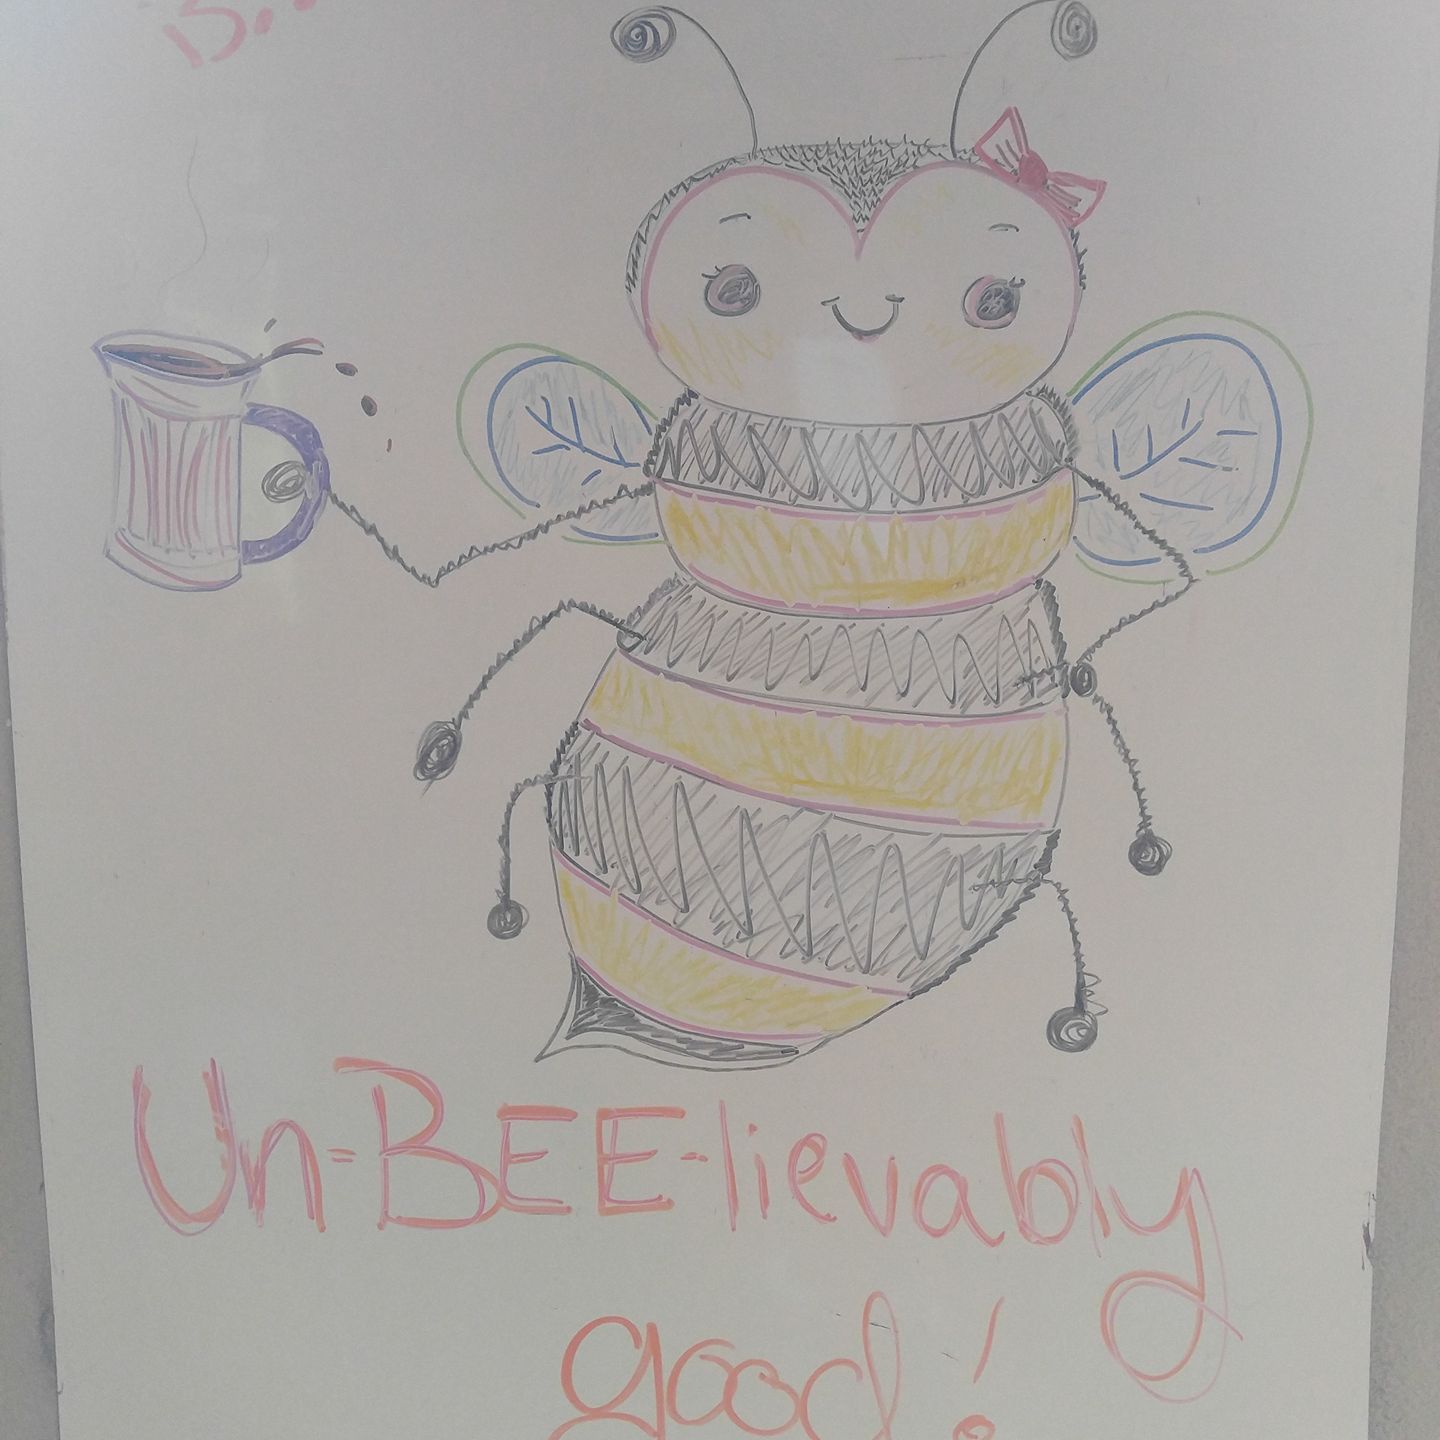 Un-BEE-lievably
good!